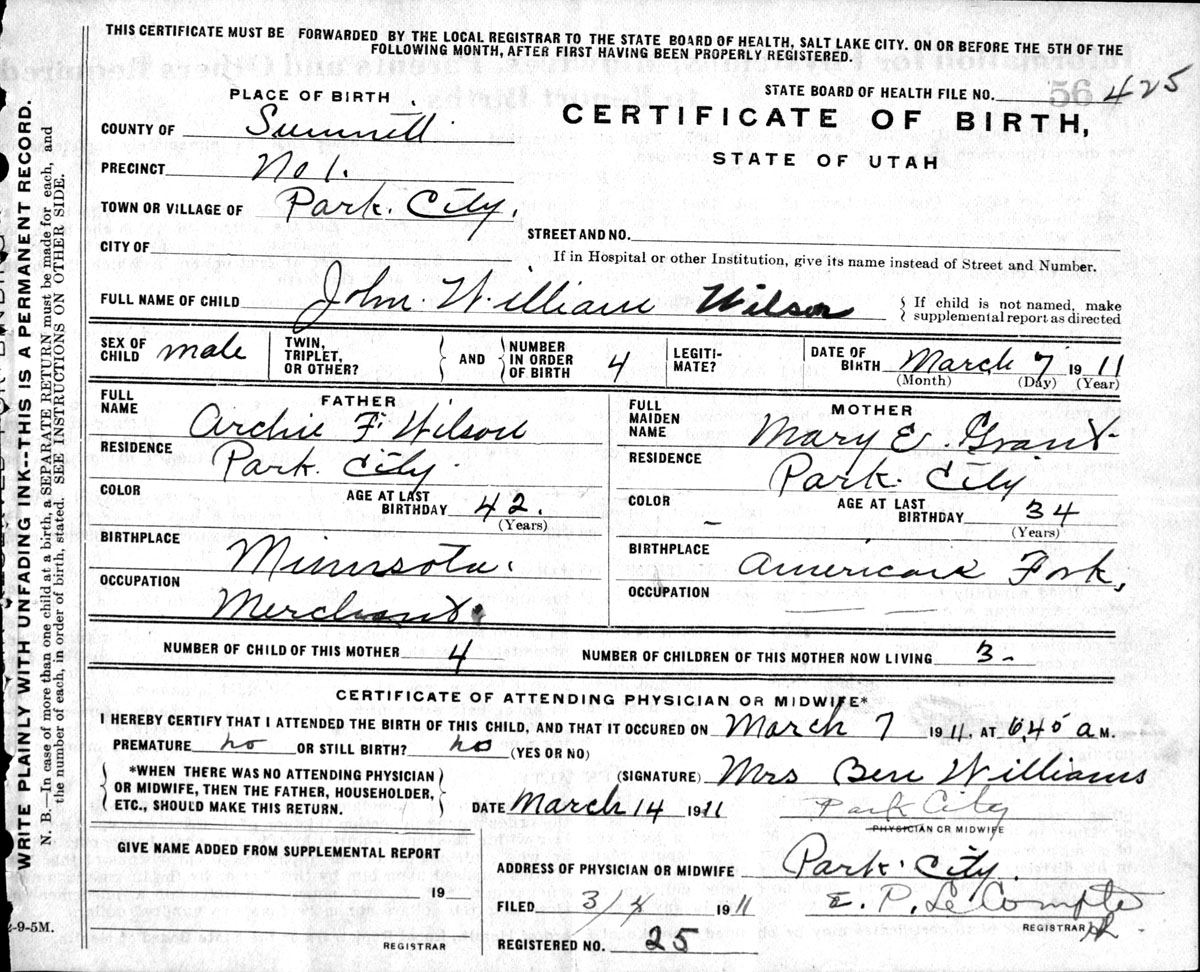 THIS CERTIFICATE MUST BE FORWARDED BY THE LOCAL REGISTRAR TO THE STATE BOARD OF HEALTH, SALT LAKE CITY. ON OR BEFORE THE 5TH OF THE
FOLLOWING MONTH, AFTER FIRST HAVING BEEN PROPERLY REGISTERED.
STATE BOARD OF HEALTH FILE NO. 425
PLACE OF BIRTH
CERTIFICATE OF BIRTH,
STATE OF UTAH
COUNTY OF Summit
PRECINCT No 1.
TOWN OR VILLAGE OF Park City.
STREET AND NO.
CITY OF
If in Hospital or other Institution, give its name instead of Street and Number.
FULL NAME OF CHILD John William Wilson
{ If child is not named, make
supplemental report as directed
SEX OF CHILD male TWIN, TRIPLET, OR OTHER? } AND { NUMBER IN ORDER OF BIRTH 4 LEGITIMATE? DATE OF BIRTH March 7 1911
(Month) (Day) (Year)
FATHER
FULL NAME Archie F Wilson
RESIDENCE Park City.
COLOR AGE AT LAST BIRTHDAY 42.
(Years)
BIRTHPLACE Minnsota.
OCCUPATION Merchant.
MOTHER
FULL MAIDEN NAME Mary E. Grant
RESIDENCE Park City
COLOR – AGE AT LAST BIRTHDAY 34
(Years)
BIRTHPLACE American Fork,
OCCUPATION — —
NUMBER OF CHILD OF THIS MOTHER 4 NUMBER OF CHILDREN OF THIS MOTHER NOW LIVING 3-
CERTIFICATE OF ATTENDING PHYSICIAN OR MIDWIFE*
I HEREBY CERTIFY THAT I ATTENDED THE BIRTH OF THIS CHILD, AND THAT IT OCCURED ON March 7 1911. AT 645 A M.
PREMATURE no OR STILL BIRTH? no (YES OR NO)
{ *WHEN THERE WAS NO ATTENDING PHYSICIAN
OR MIDWIFE, THEN THE FATHER, HOUSEHOLDER,
ETC., SHOULD MAKE THIS RETURN. }
(SIGNATURE) Mrs Ben Williams
DATE March 14 1911 Park City
PHYSICIAN OR MIDWIFE
GIVE NAME ADDED FROM SUPPLEMENTAL REPORT
19
REGISTRAR
ADDRESS OF PHYSICIAN OR MIDWIFE Park City
FILED 3/ 1911 E. P. Le Compte
REGISTRAR
REGISTERED NO. 25
2-9-5M.
WRITE PLAINLY WITH UNFADING INK---THIS IS A PERMANENT RECORD.
N. B.—In case of more than one child at a birth, a SEPARATE RETURN must be made for each, and
the number of each, in order of birth, stated. SEE INSTRUCTIONS ON OTHER SIDE.